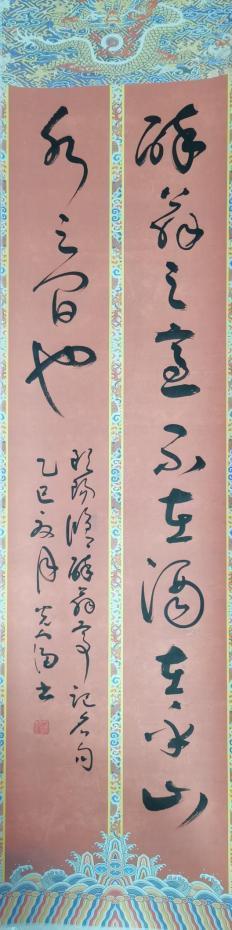 醉翁之意不在酒在乎山
水之間也
歐陽脩醉翁亭記名句
乙巳 月 書